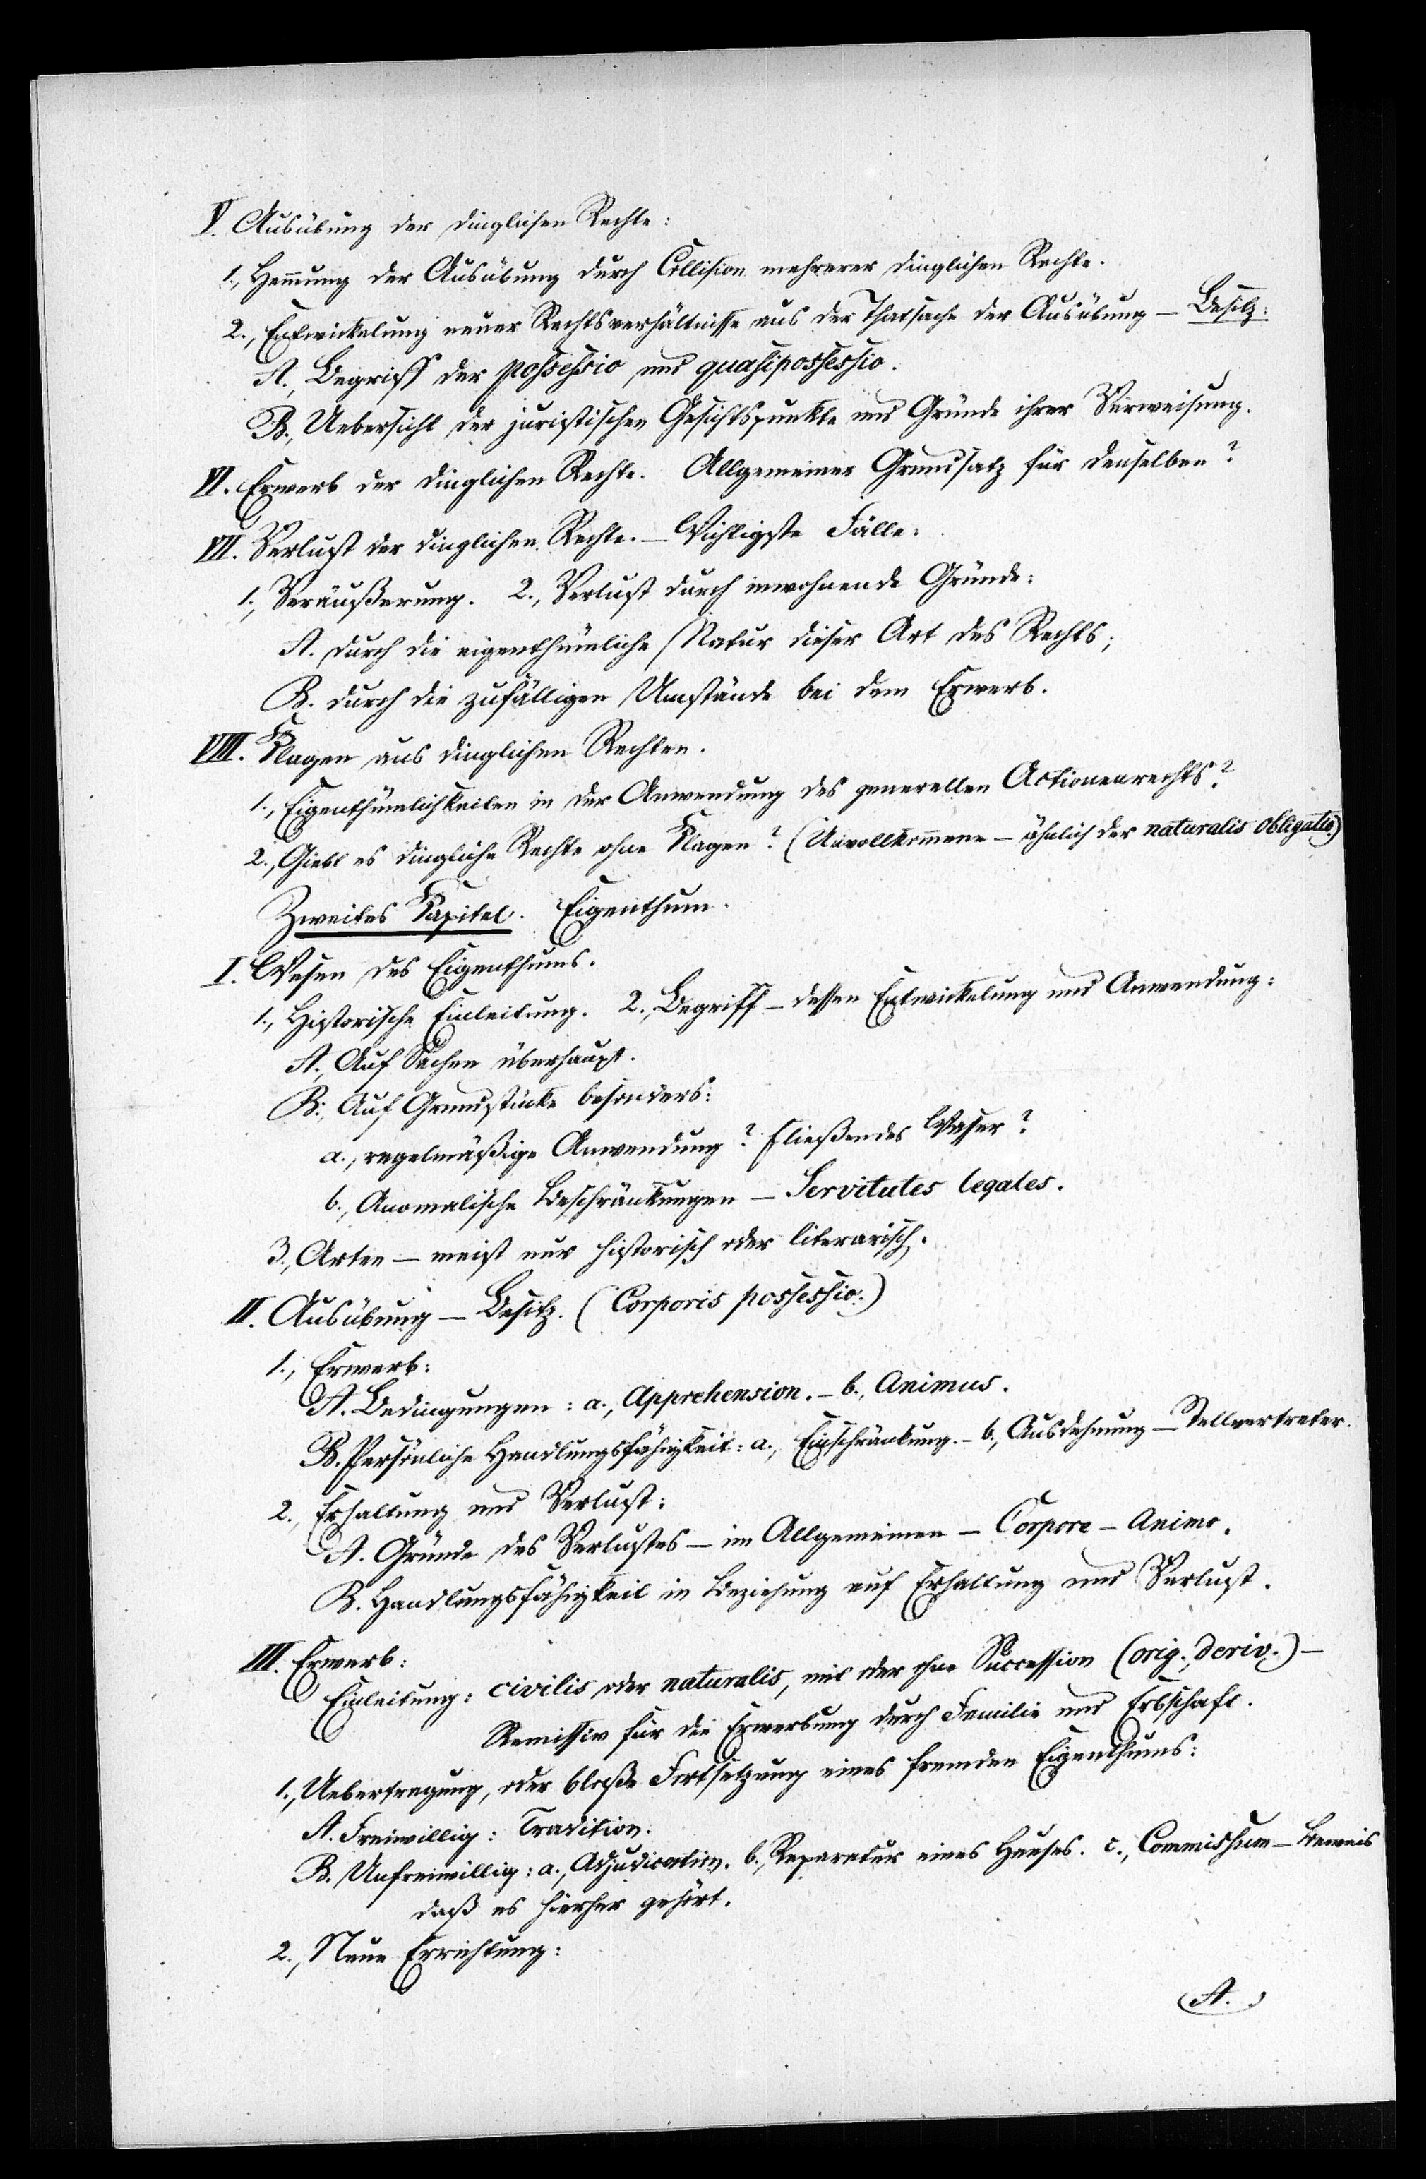 V. Ausübung der dinglichen Rechte:
1., Hemmung der Ausübung durch Collision mehrerer dinglichen Rechte.
2., Entwickelung neuer Rechtsverhältnisse aus der Thatsache der Ausübung – Besitz:
A., Begriff der possessio, und quasipossessio.
B., Uebersicht der juristischen Gesichtspunkte und Gründe ihrer Verweisung.
VI. Erwerb der dinglichen Rechte. Allgemeiner Grundsatz für denselben?
VII. Verlust der dinglichen Rechte. – Wichtigste Fälle:
1., Veräußerung. 2., Verlust durch inwohnende Gründe:
A. durch die eigenthümliche Natur dieser Art des Rechts;
B. durch die zufälligen Umstände bei dem Erwerb.
VIII. Klagen aus dinglichen Rechten.
1., Eigenthümlichkeiten in der Anwendung des generellen Actionenrechts?
2., Giebt es dingliche Rechte ohne Klagen? (Unvollkommene – ähnlich der naturalis obligatio.)
Zweites Kapitel. Eigenthum.
I. Wesen des Eigenthums.
1., Historische Einleitung. 2., Begriff – dessen Entwickelung und Anwendung:
A., Auf Sachen überhaupt.
B., Auf Grundstücke besonders:
a., regelmäßige Anwendung? fließendes Wasser?
b., Anomalische Beschränkungen – Servitutes legales.
3., Arten – meist nur historisch oder literarisch.
II. Ausübung – Besitz. (Corporis possessio.)
1., Erwerb:
A. Bedingungen: a., Apprehension. – b., Animus.
B. Persönliche Handlungsfähigkeit: a., Einschränkung. – b., Ausdehnung – Stellvertreter.
2., Erhaltung und Verlust:
A. Gründe des Verlustes – im Allgemeinen – Corpore – Animo.
B. Handlungsfähigkeit in Beziehung auf Erhaltung und Verlust.
III. Erwerb:
Einleitung: civilis oder naturalis, mit oder ohne Succession (orig., deriv.) –
Remissiv für die Erwerbung durch Familie und Erbschaft.
1., Uebertragung, oder bloße Fortsetzung eines fremden Eigenthums:
A. Freiwillig: Tradition.
B. Unfreiwillig: a., Adjudication. b., Reparatur eines Hauses. c., Commissum – Beweis
daß es hierher gehört.
2., Neue Errichtung:
A.